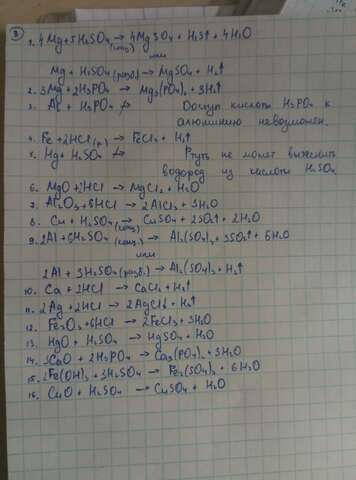 3
1. 4Mg+5H₂SO₄(конц.)→4MgSO₄ + H₂S↑ + 4H₂O
или
Mg + H₂SO₄(разб.)→MgSO₄ + H₂↑
2. 3Mg+2H₃PO₄→Mg₃(PO₄)₂+3H₂↑
3. Al + H₃PO₄ ↛ Доступ кислоты H₃PO₄ к
алюминию невозможен.
4. Fe+2HCl(р.) → FeCl₂ + H₂↑
5. Hg+H₂SO₄ ↛ Ртуть не может вытеснить
водород из кислоты H₂SO₄
6. MgO+2HCl → MgCl₂ + H₂O
7. Al₂O₃+6HCl → 2AlCl₃ + 3H₂O
8. Cu + H₂SO₄(конц.)→ CuSO₄ + 2SO₂↑ + 2H₂O
9. 2Al+6H₂SO₄(конц.) → Al₂(SO₄)₃+3SO₂↑ + 6H₂O
или
2Al + 3H₂SO₄(разб.)→Al₂(SO₄)₃ + H₂↑
10. Ca + 2HCl → CaCl₂ + H₂↑
11. 2Ag + 2HCl → 2AgCl + H₂↑
12. Fe₂O₃+6HCl → 2FeCl₃ + 3H₂O
13. HgO + H₂SO₄ → HgSO₄ + H₂O
14. 3CaO + 2H₃PO₄ → Ca₃(PO₄)₂+3H₂O
15. 2Fe(OH)₃+3H₂SO₄ → Fe₂(SO₄)₃ + 6H₂O
16. CuO + H₂SO₄ → CuSO₄ + H₂O